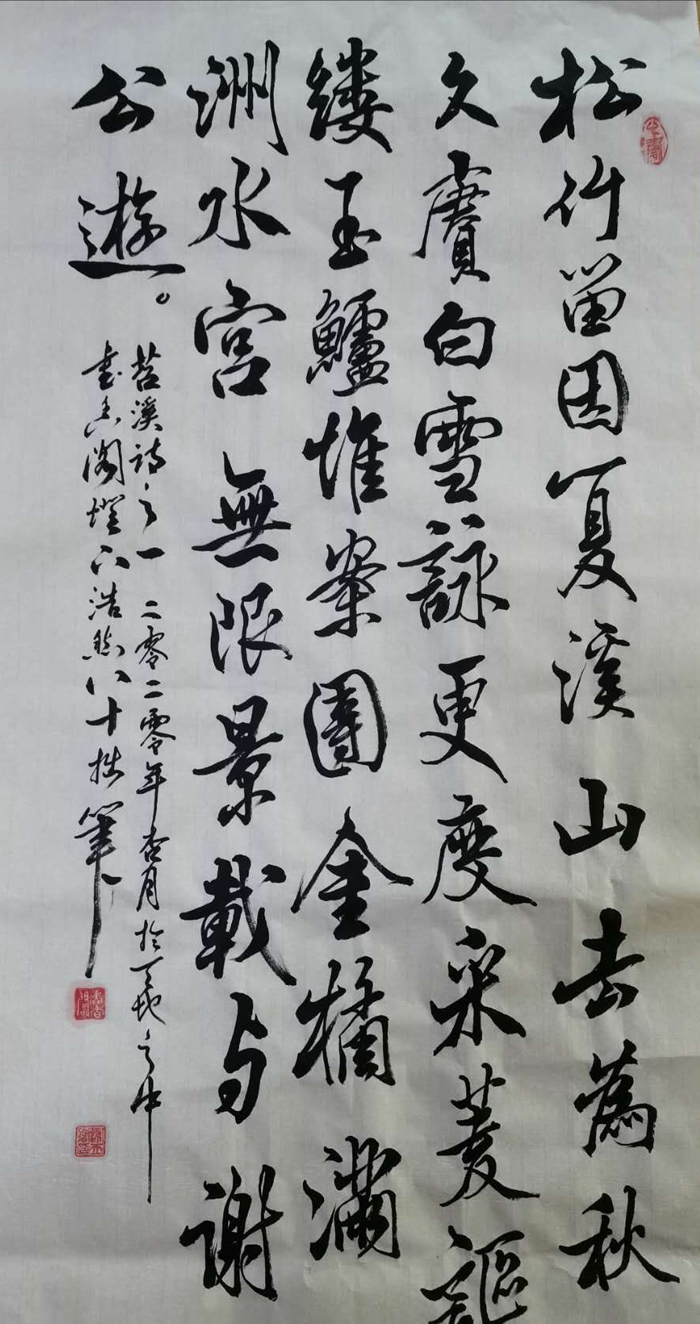 松竹留因夏溪山去為秋
久賡白雪詠更度采菱謳
縷玉鱸堆案團金橘滿
洲水宮無限景載与謝
公遊。
苕溪詩之一 二零二零年杏月於天地之中
書香閣燈下浩然八十拙筆